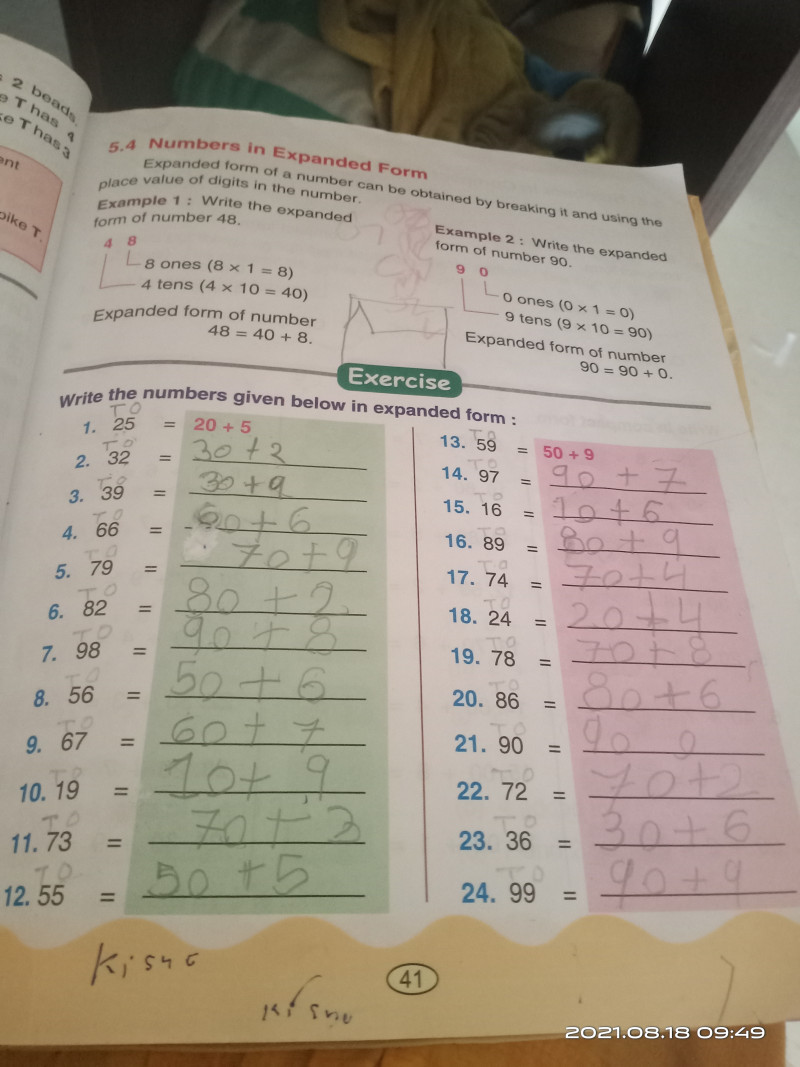 2 beads.
e T has 4
e T has 3
ent
pike T.
5.4 Numbers in Expanded Form
Expanded form of a number can be obtained by breaking it and using the
place value of digits in the number.
Example 1 : Write the expanded
form of number 48.
4 8
8 ones (8 × 1 = 8)
4 tens (4 × 10 = 40)
Expanded form of number
48 = 40 + 8.
Example 2 : Write the expanded
form of number 90.
9 0
0 ones (0 × 1 = 0)
9 tens (9 × 10 = 90)
Expanded form of number
90 = 90 + 0.
Exercise
Write the numbers given below in expanded form :
T O
1. 25 = 20 + 5
T O
2. 32 = 30 + 2
T O
3. 39 = 30 + 9
T O
4. 66 = 60 + 6
T O
5. 79 = 70 + 9
T O
6. 82 = 80 + 2
T O
7. 98 = 90 + 8
T O
8. 56 = 50 + 6
T O
9. 67 = 60 + 7
T O
10. 19 = 10 + 9
T O
11. 73 = 70 + 3
T O
12. 55 = 50 + 5
T O
13. 59 = 50 + 9
T O
14. 97 = 90 + 7
T O
15. 16 = 10 + 6
T O
16. 89 = 80 + 9
T O
17. 74 = 70 + 4
T O
18. 24 = 20 + 4
T O
19. 78 = 70 + 8
T O
20. 86 = 80 + 6
T O
21. 90 = 90 0
T O
22. 72 = 70 + 2
T O
23. 36 = 30 + 6
T O
24. 99 = 90 + 9
41
2021.08.18 09:49